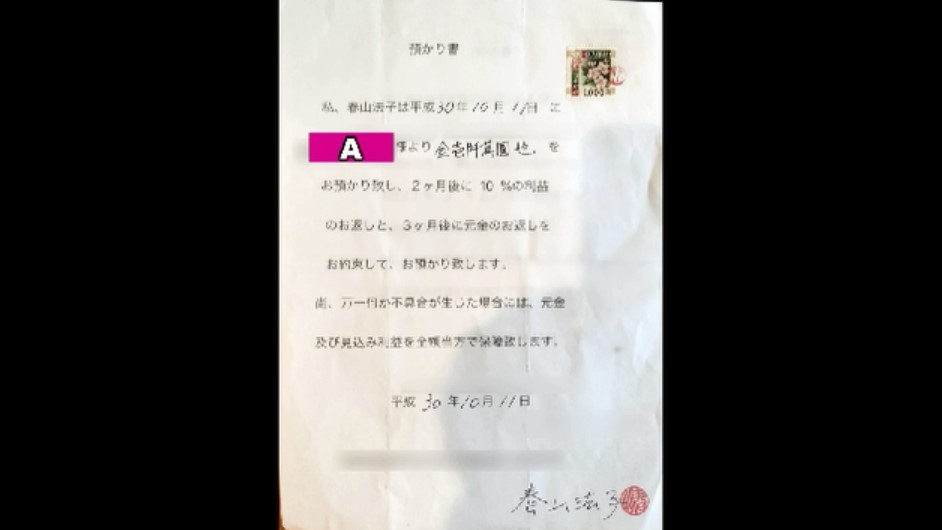 預かり書
1,000
私、春山法子は平成30年10月11日 に
A 様より 金壱阡萬圓也. を
お預かり致し、2ヶ月後に 10 %の利益
のお返しと、3ヶ月後に元金のお返しを
お約束して、お預かり致します。
尚、万一何か不具合が生じた場合には、元金
及び見込み利益を全額当方で保障致します。
平成 30 年10月11日
春山法子